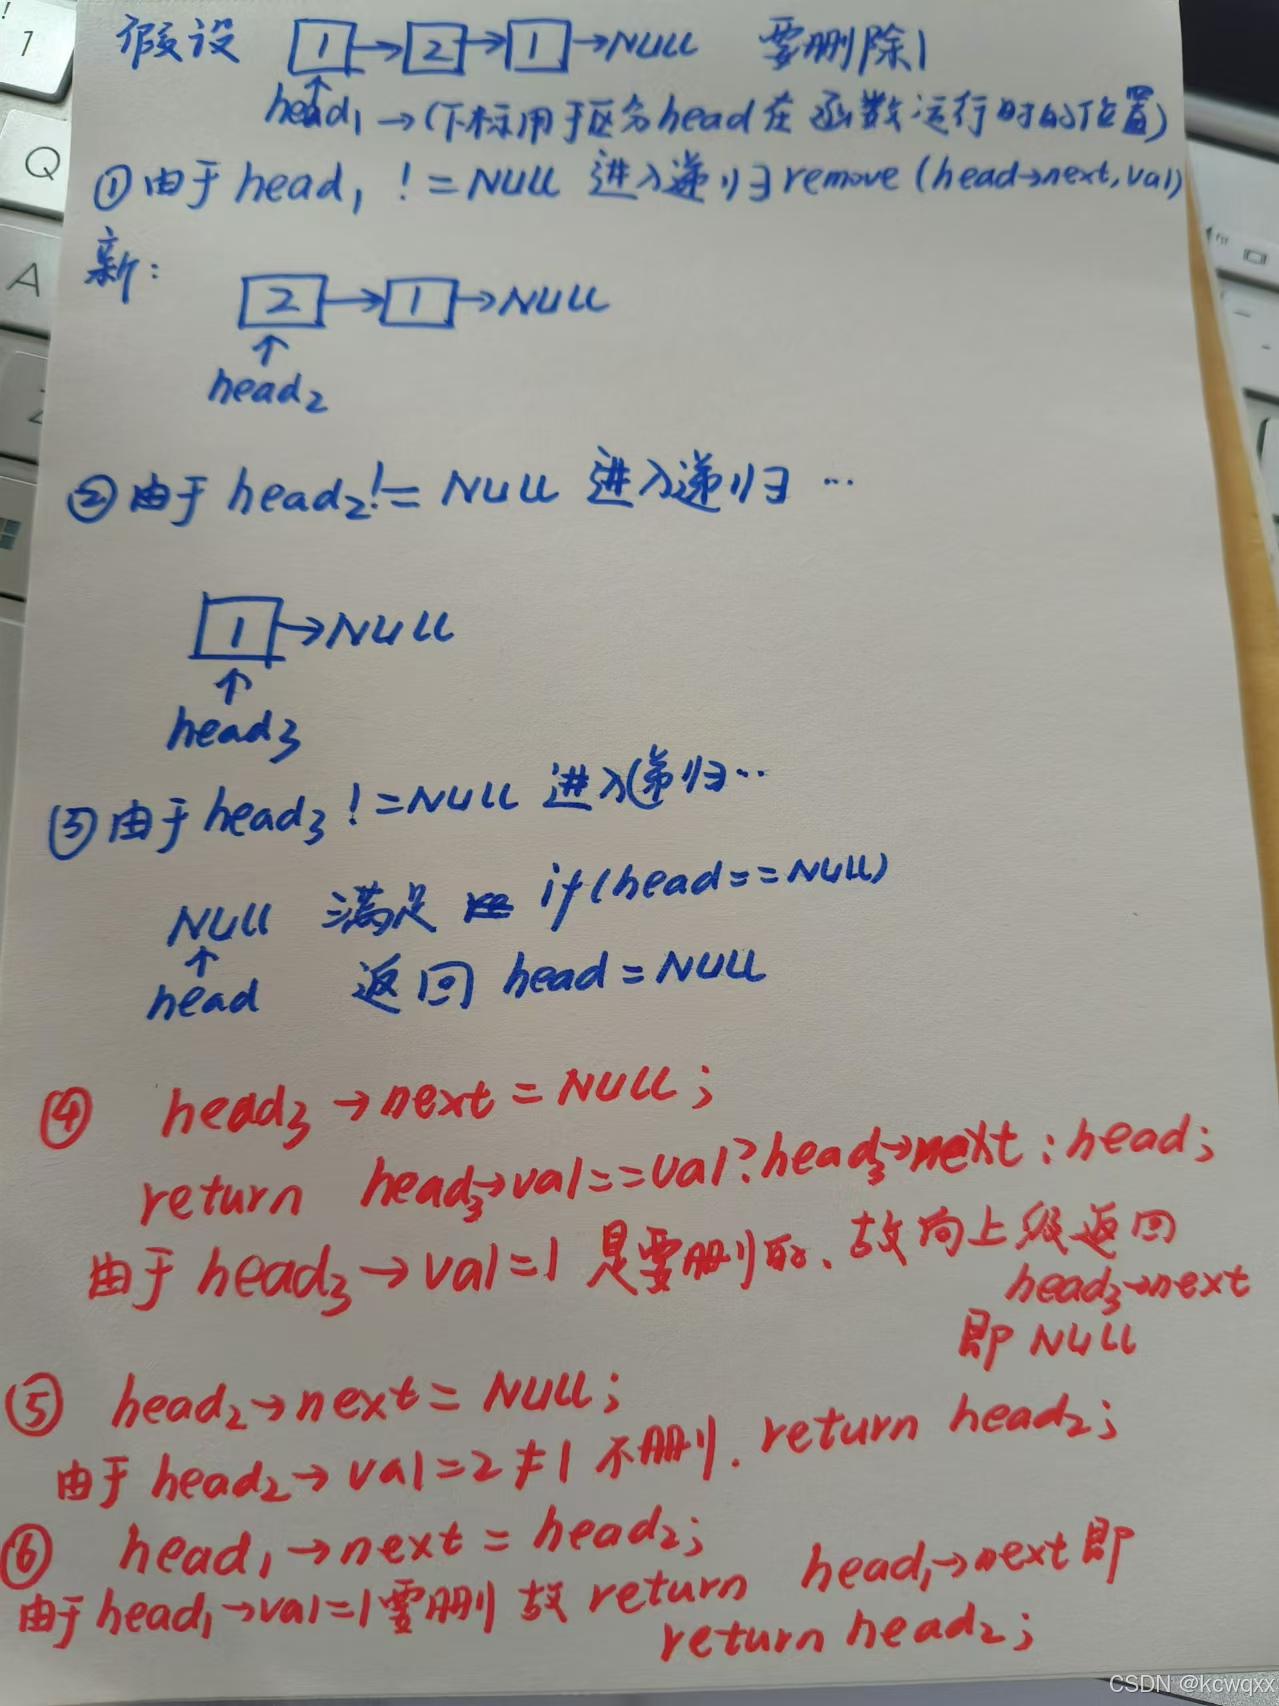 假设 1→2→1→NULL 要删除1
head1→(下标用于区分head在函数运行时的位置)
①由于head1 !=NULL 进入递归remove(head→next,val)
新:
2→1→NULL
↑
head2
②由于head2!=NULL 进入递归…
1→NULL
↑
head3
③由于head3!=NULL 进入递归…
NULL 满足 if(head==NULL)
↑
head 返回 head=NULL
④ head3→next=NULL;
return head3→val==val?head3→next:head;
由于head3→val=1 是要删的、故向上级返回
head3→next
即NULL
⑤ head2→next=NULL;
由于head2→val=2≠1 不删. return head2;
⑥ head1→next=head2;
由于head1→val=1要删 故return head1→next即
return head2;
Q
A
Z
1
!
CSDN @kcwqxx